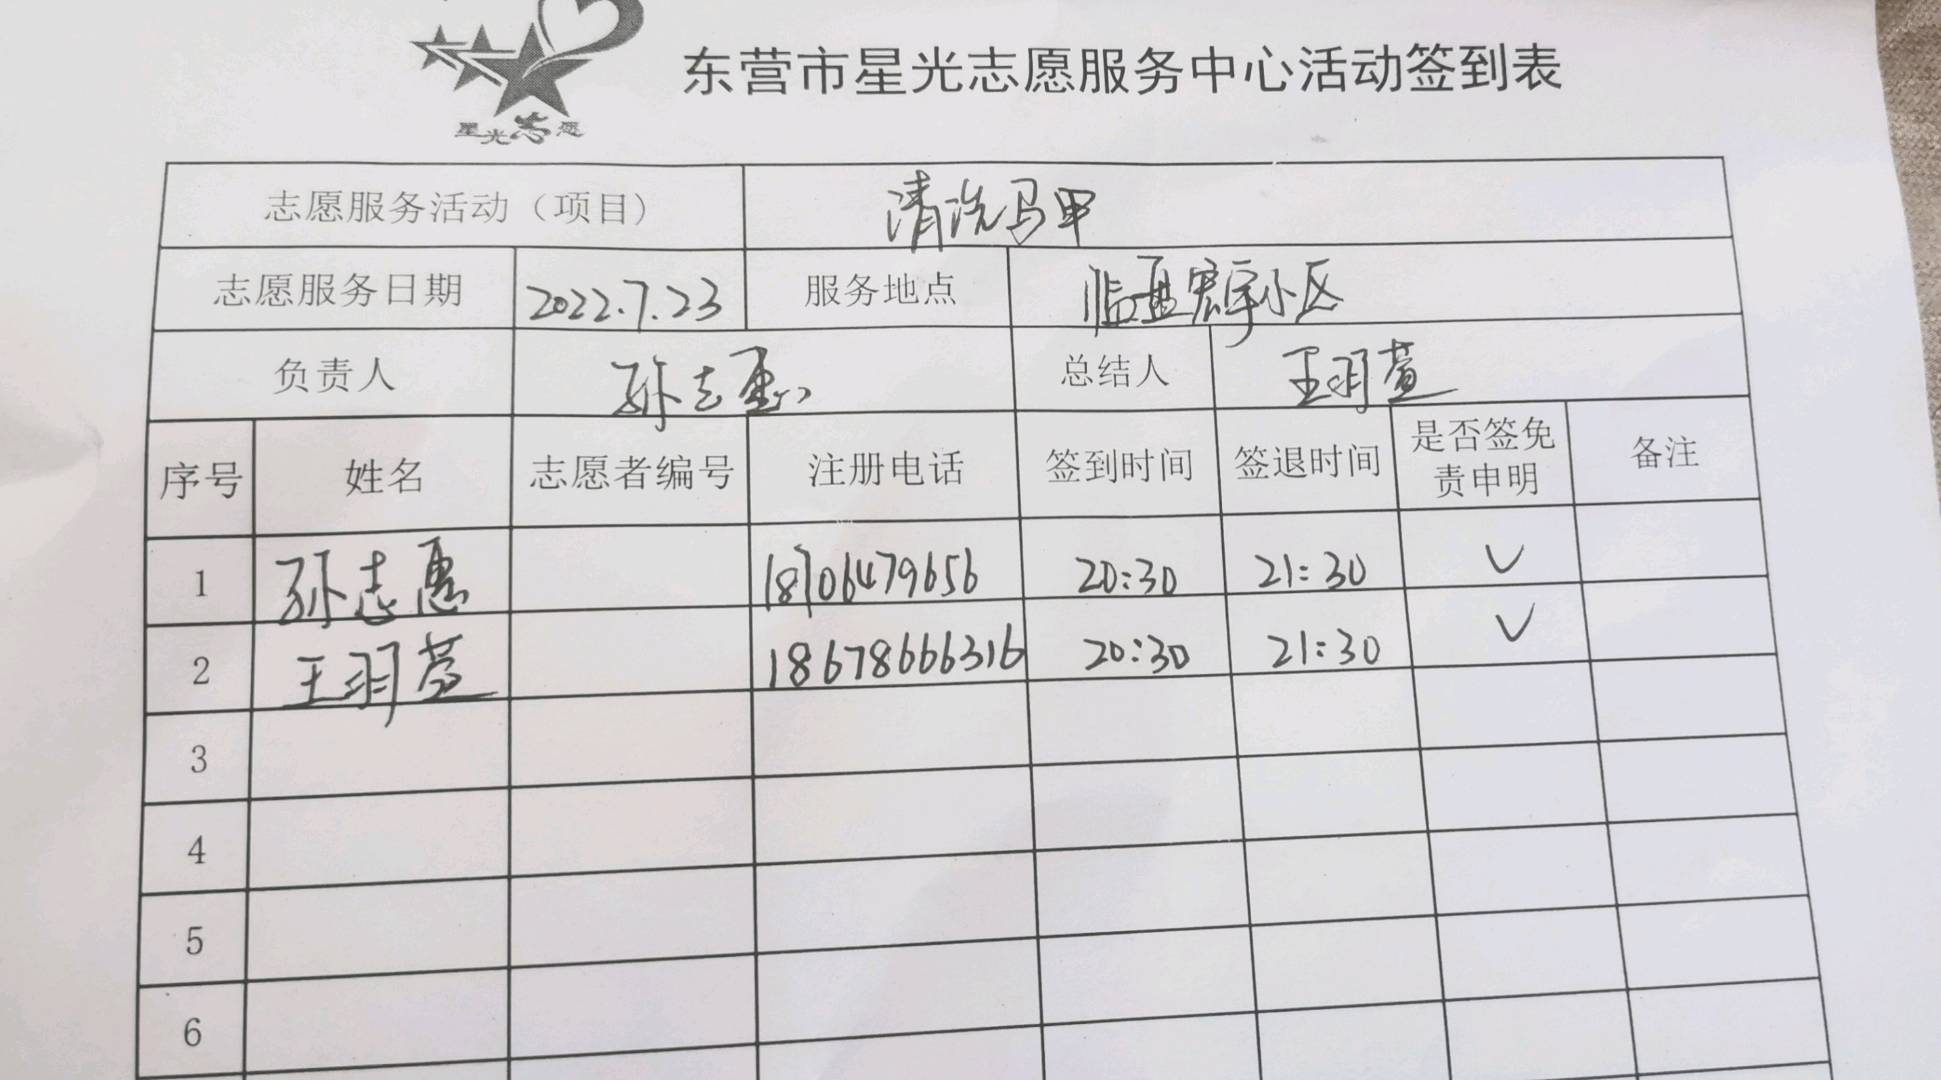 星光志愿
东营市星光志愿服务中心活动签到表
志愿服务活动（项目） 清洗马甲
志愿服务日期 2022.7.23 服务地点 临邑宏宇小区
负责人 孙志惠 总结人 王羽萱
序号 姓名 志愿者编号 注册电话 签到时间 签退时间 是否签免责申明 备注
1 孙志惠 18706479656 20:30 21:30 ✓
2 王羽萱 18678666316 20:30 21:30 ✓
3
4
5
6